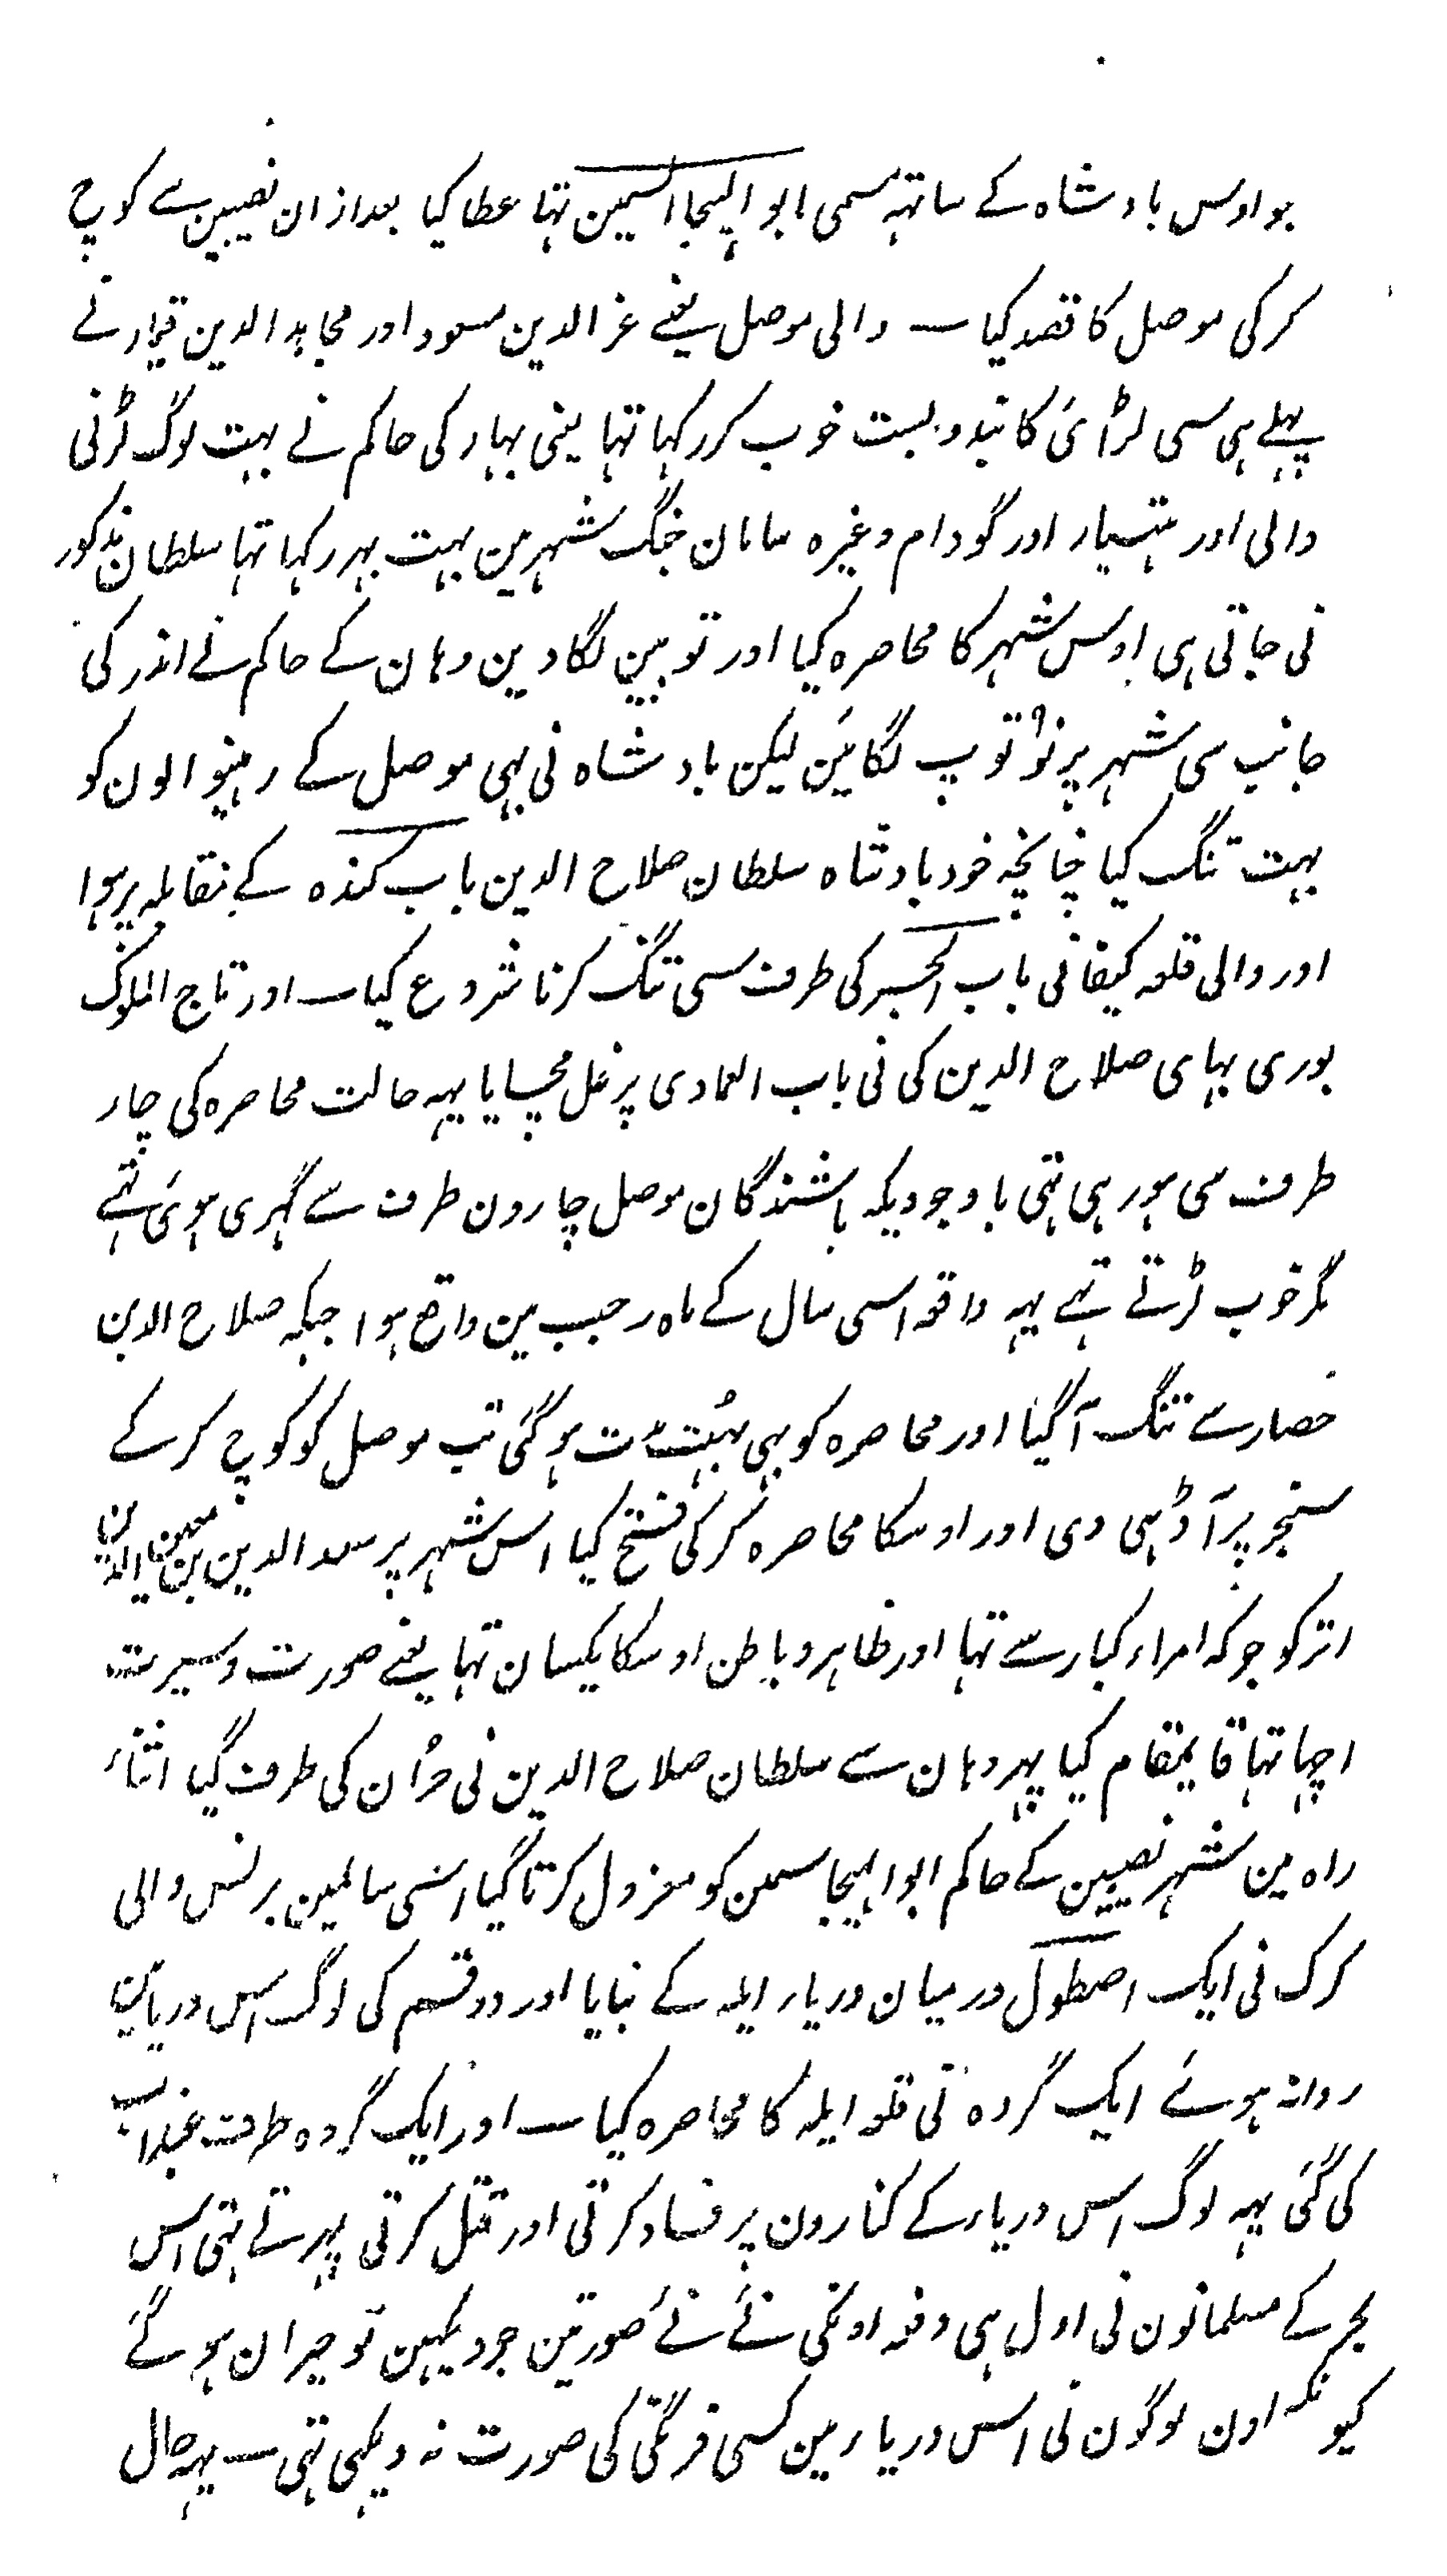 جو اوس بادشاہ کے ساتہہ مسمی ابو الہیجا السمین تہا عطا کیا بعد ازان نصیبین سے کوچ
کر کی موصل کا قصد کیا والی موصل یعنے عز الدین مسعود اور مجاہد الدین قیماز نے
پہلے ہی سی لڑائی کا بندوبست خوب کر رکہا تہا یعنی بہار کی حاکم نے بہت لوگ لڑنی
والی اور ہتیار اور گودام وغیرہ سامان جنگ شہر مین بہت بہر رکہا تہا سلطان مذکور
نی جاتی ہی اوس شہر کا محاصرہ کیا اور توپین لگا دین وہان کے حاکم نے اندر کی
جانب سی شہر پر نو۹ توپ لگائین لیکن بادشاہ نی بہی موصل کے رہنیوالون کو
بہت تنگ کیا چنانچہ خود بادشاہ سلطان صلاح الدین باب کندہ کے بمقابلہ پر ہوا
اور والی قلعہ کیفا نی باب الجسر کی طرف سی تنگ کرنا شروع کیا اور تاج الملوک
بوری بہای صلاح الدین کی نی باب العمادی پر غل مچایا یہہ حالت محاصرہ کی چار
طرف سی ہو رہی تہی باوجودیکہ باشندگان موصل چارون طرف سے گہری ہوئی تہے
مگر خوب لڑتے تہے یہہ واقعہ اسی سال کے ماہ رجب مین واقع ہوا جبکہ صلاح الدین
حصار سے تنگ آگیا اور محاصرہ کو بہی بہت مدت ہو گئی تب موصل کو کوچ کر کے
سنجر پر آ ڈہی دی اور اوسکا محاصرہ کر کی فتح کیا اس شہر پر سعد الدین بن معین الدین
انز کو جو کہ امراء کبار سے تہا اور ظاہر و باطن اوسکا یکسان تہا یعنے صورت و سیرت
اچہا تہا قایمقام کیا پہر وہان سے سلطان صلاح الدین نی حران کی طرف گیا اثناء
راہ مین شہر نصیبین کے حاکم ابو الہیجا سمین کو معزول کرتا گیا اسی سالمین برنس والی
کرک نی ایک اصطول درمیان دریاء ایلہ کے بنایا اور دو قسم کی لوگ اس دریا مین
روانہ ہوئے ایک گروہ نی قلعہ ایلہ کا محاصرہ کیا اور ایک گروہ طرف عیذاب
کی گئی یہہ لوگ اس دریاء کے کنارون پر فساد کرتی اور قتل کرتی پہرتے تہی اس
بحر کے مسلمانون نی اول ہی دفعہ اونکی نئے نئے صورتین جو دیکہین تو حیران ہو گئے
کیونکہ اون لوگون نی اس دریاء مین کسی فرنگی کی صورت نہ دیکہی تہی یہہ حال